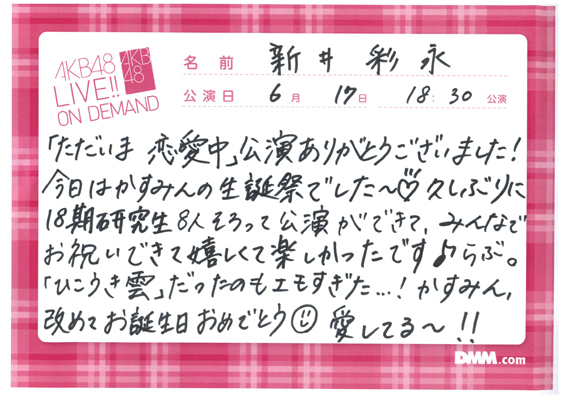 AKB48
LIVE!!
ON DEMAND
AKB
48
名前 新井 彩永
公演日 6月 17日 18:30 公演
「ただいま 恋愛中」公演ありがとうございました!
今日はかすみんの生誕祭でした〜♡久しぶりに
18期研究生8人そろって公演ができて、みんなで
お祝いできて嬉しくて楽しかったです♪らぶ。
「ひこうき雲」だったのもエモすぎた...!かすみん、
改めてお誕生日おめでとう☺愛してる〜!!
DMM.com